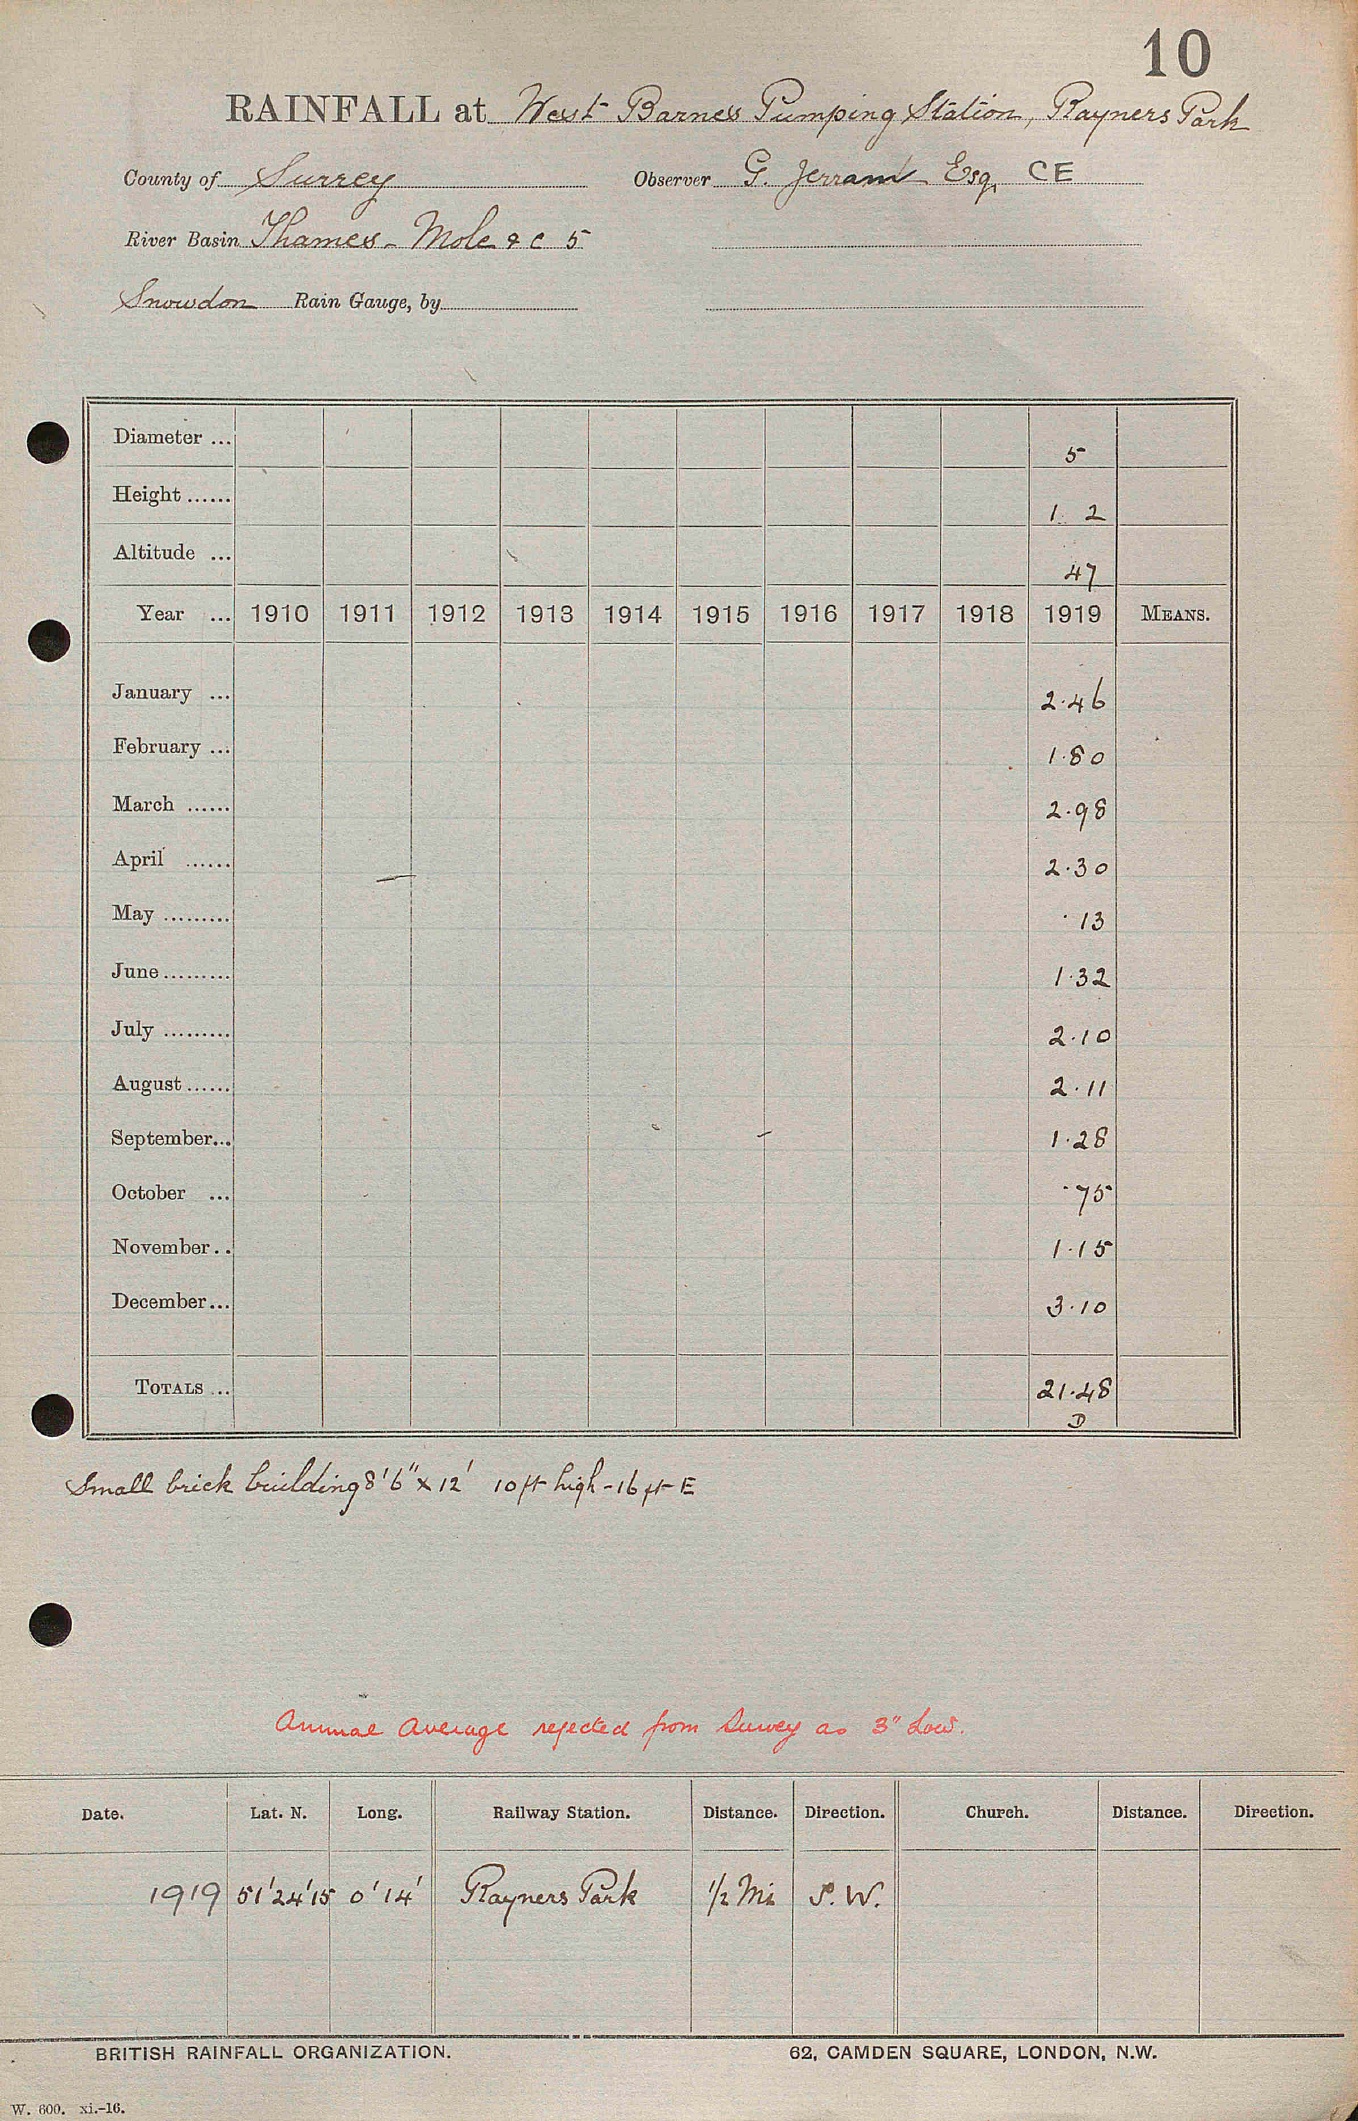 10
RAINFALL at West Barnes Pumping Station, Rayners Park
County of Surrey Observer G. Jerram Esq, CE
River Basin Thames - Mole & c 5
Snowdon Rain Gauge, by
Diameter ... 5
Height ...... 1 2
Altitude ... 47
Year ... 1910 1911 1912 1913 1914 1915 1916 1917 1918 1919 MEANS.
January ... 2.46
February ... 1.80
March ...... 2.98
April ...... 2.30
May ......... .13
June ......... 1.32
July ......... 2.10
August ...... 2.11
September... 1.28
October ... .75
November.. 1.15
December... 3.10
TOTALS ... 21.48
D
Small brick building 8'6" x 12' 10 ft high - 16 ft E
Annual Average rejected from Survey as 3" Low.
Date. Lat. N. Long. Railway Station. Distance. Direction. Church. Distance. Direction.
1919 51'24'15 0'14' Rayners Park 1/2 Mi S.W.
BRITISH RAINFALL ORGANIZATION. 62, CAMDEN SQUARE, LONDON, N.W.
W. 600. xi.-16.